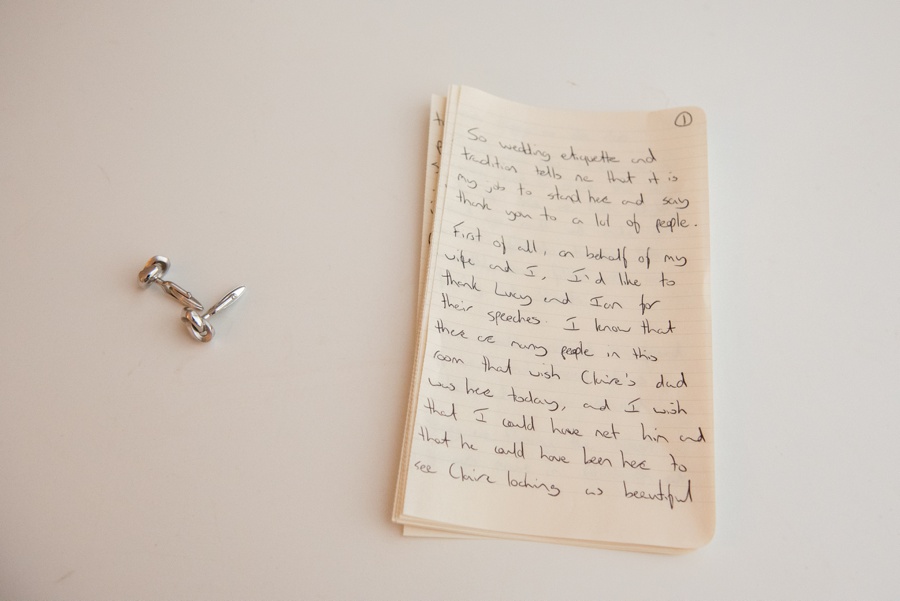 ①
So wedding etiquette and
tradition tells me that it is
my job to stand here and say
thank you to a lot of people.
First of all, on behalf of my
wife and I, I'd like to
thank Lucy and Ian for
their speeches. I know that
there are many people in this
room that wish Claire's dad
was here today, and I wish
that I could have met him and
that he could have been here to
see Claire looking as beautiful